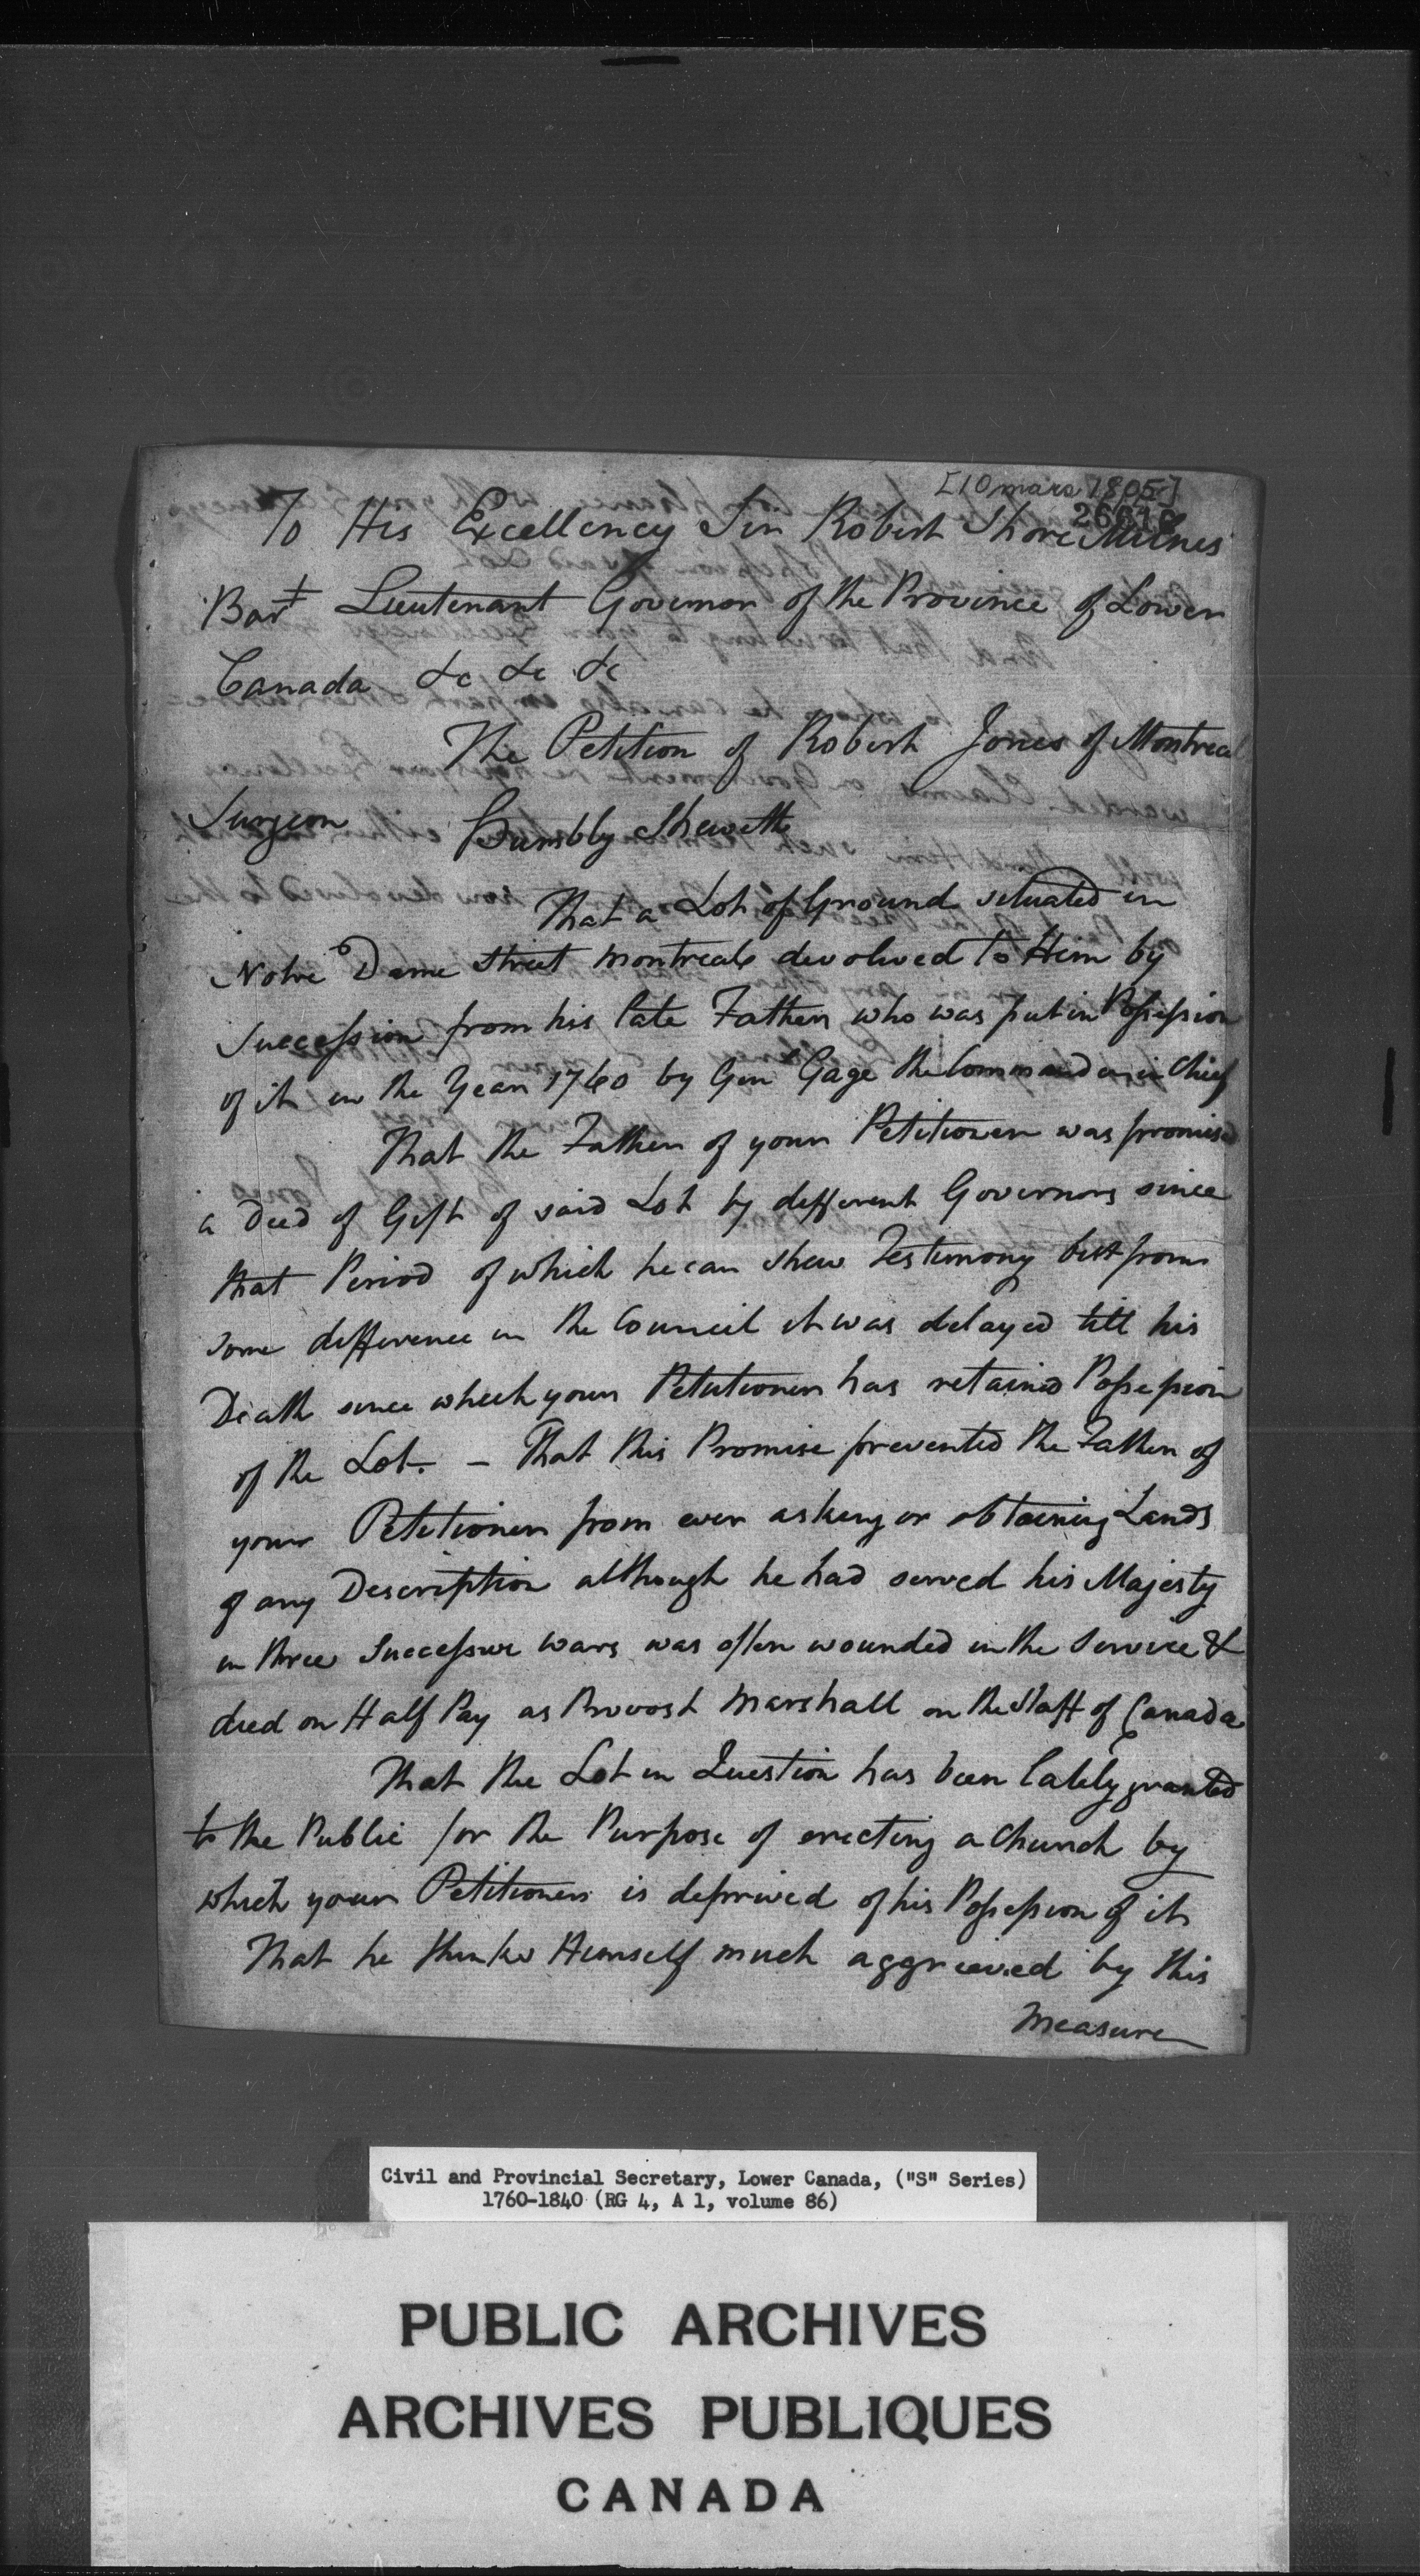 [10 mars 1805]
To His Excellency Sir Robert Shore Milnes
Bart Lieutenant Governor of the Province of Lower
Canada &c &c &c
The Petition of Robert Jones of Montreal
Surgeon Humbly Sheweth
That a Lot of Ground situated in
Notre Dame street Montreal devolved to Him by
Succession from his late Father who was put in Possession
of it in the Year 1760 by Genl Gage the Commander in Chief
That the Father of your Petitioner was promised
a Deed of Gift of said Lot by different Governors since
that Period of which he can shew Testimony but from
some difference in the Council it was delayed till his
Death since which your Petitioner has retained Possession
of the Lot. – That this Promise prevented the Father of
your Petitioner from ever asking or obtaining Lands
of any Description although he had served his Majesty
in three Successive wars was often wounded in the Service &
died on Half Pay as Provost Marshall on the Staff of Canada
That the Lot in Question has been lately granted
to the Public for the Purpose of erecting a Church by
which your Petitioner is deprived of his Possession of it
That he thinks Himself much aggrieved by this
Measure
Civil and Provincial Secretary, Lower Canada, ("S" Series)
1760-1840 (RG 4, A 1, volume 86)
PUBLIC ARCHIVES
ARCHIVES PUBLIQUES
CANADA